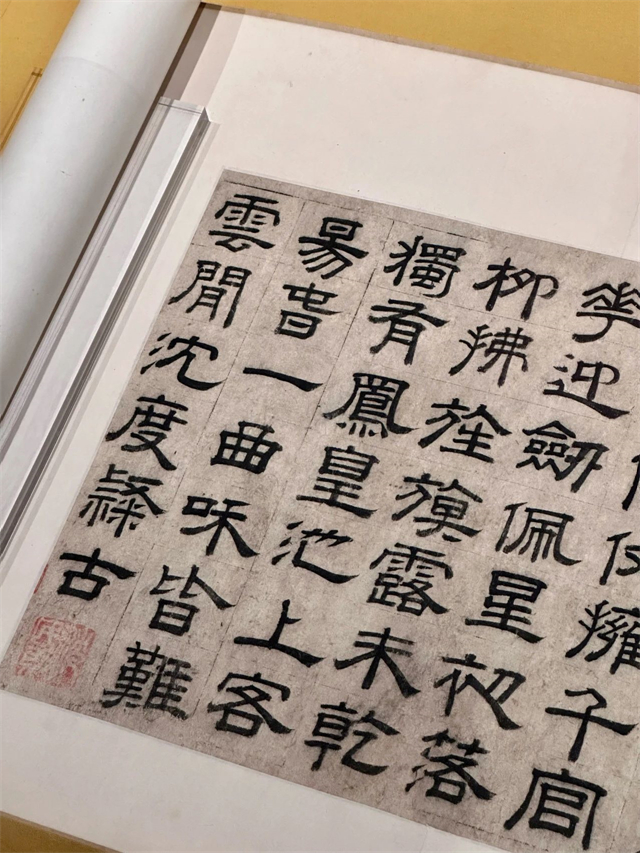 仗擁千官
華迎劒佩星初落
柳拂旌旗露未乾
獨有鳳皇池上客
昜旾一曲咊皆難
雲閒沈度隸古